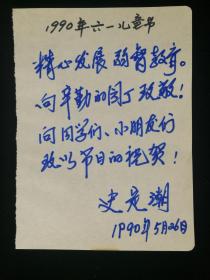 1990年六一儿童节
精心发展弱智教育。
向辛勤的园丁致敬！
向同学们、小朋友们
致以节日的祝贺！
史定潮
1990年5月26日